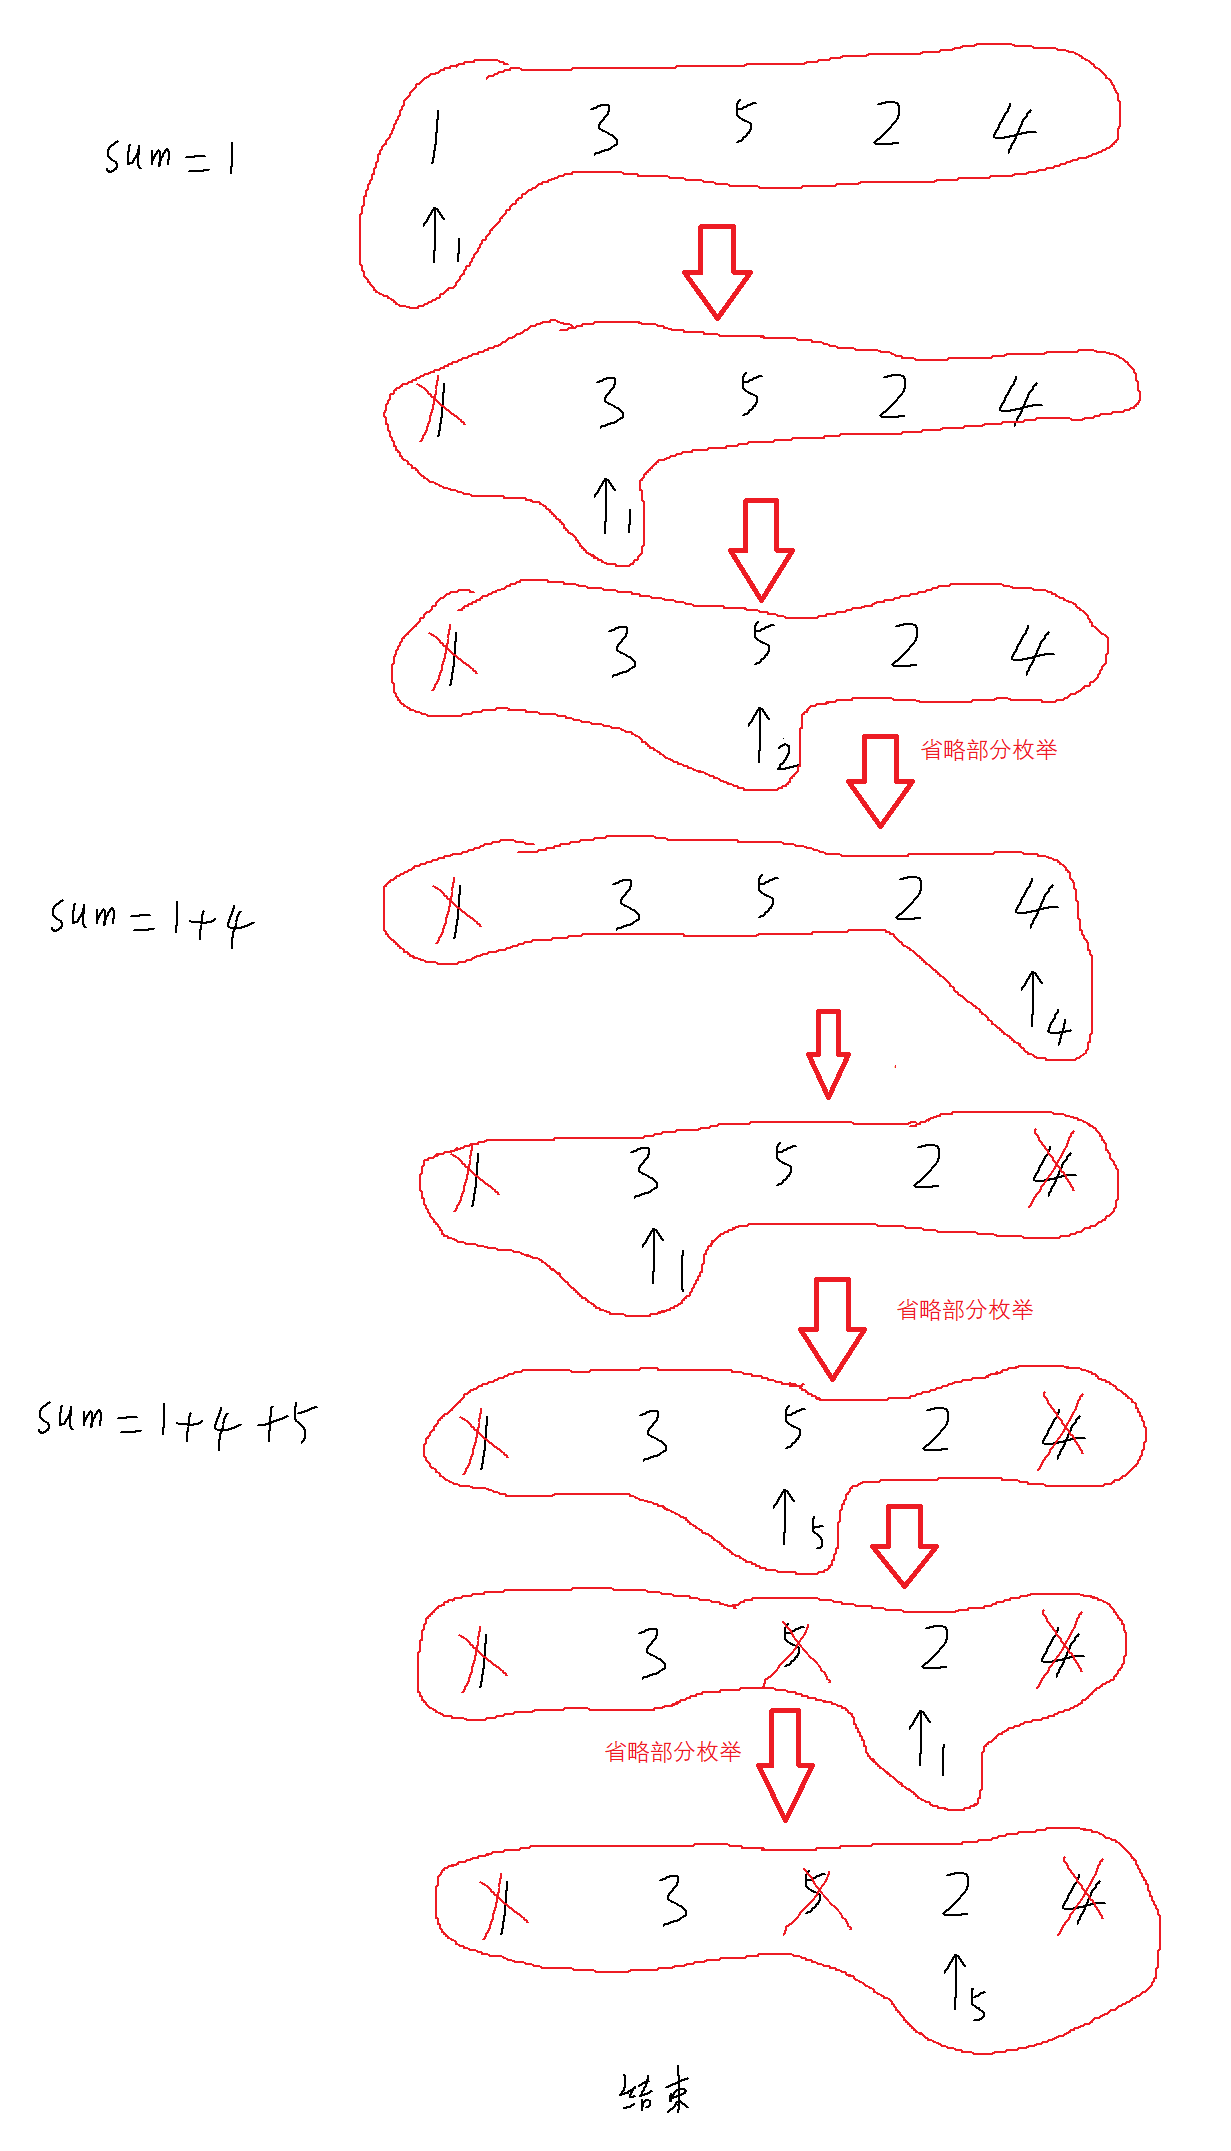 sum=1
1 3 5 2 4
1
1 3 5 2 4
1
1 3 5 2 4
2
省略部分枚举
sum=1+4
1 3 5 2 4
4
1 3 5 2 4
1
省略部分枚举
sum=1+4+5
1 3 5 2 4
5
1 3 5 2 4
1
省略部分枚举
1 3 5 2 4
5
结束